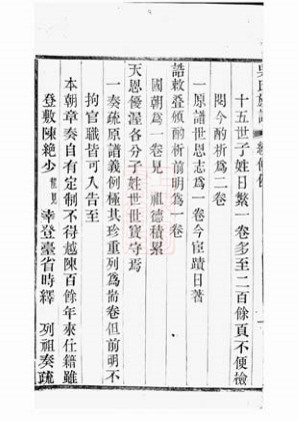 十五世子姓日繁一卷多至二百餘頁不便檢
閱今酌析爲二卷
一原譜世恩志爲一卷今宦蹟日著
誥敕叠頒酌析前明爲一卷
國朝爲一卷見 祖德積累
天恩優渥各分子姓世世寶守焉
一奏疏原譜義例極其珍重列爲耑卷但前明不
拘官職皆可入告至
本朝章奏自有定制不得越陳百餘年來仕籍雖
登敷陳絶少 幸登臺省時繹 列祖奏疏